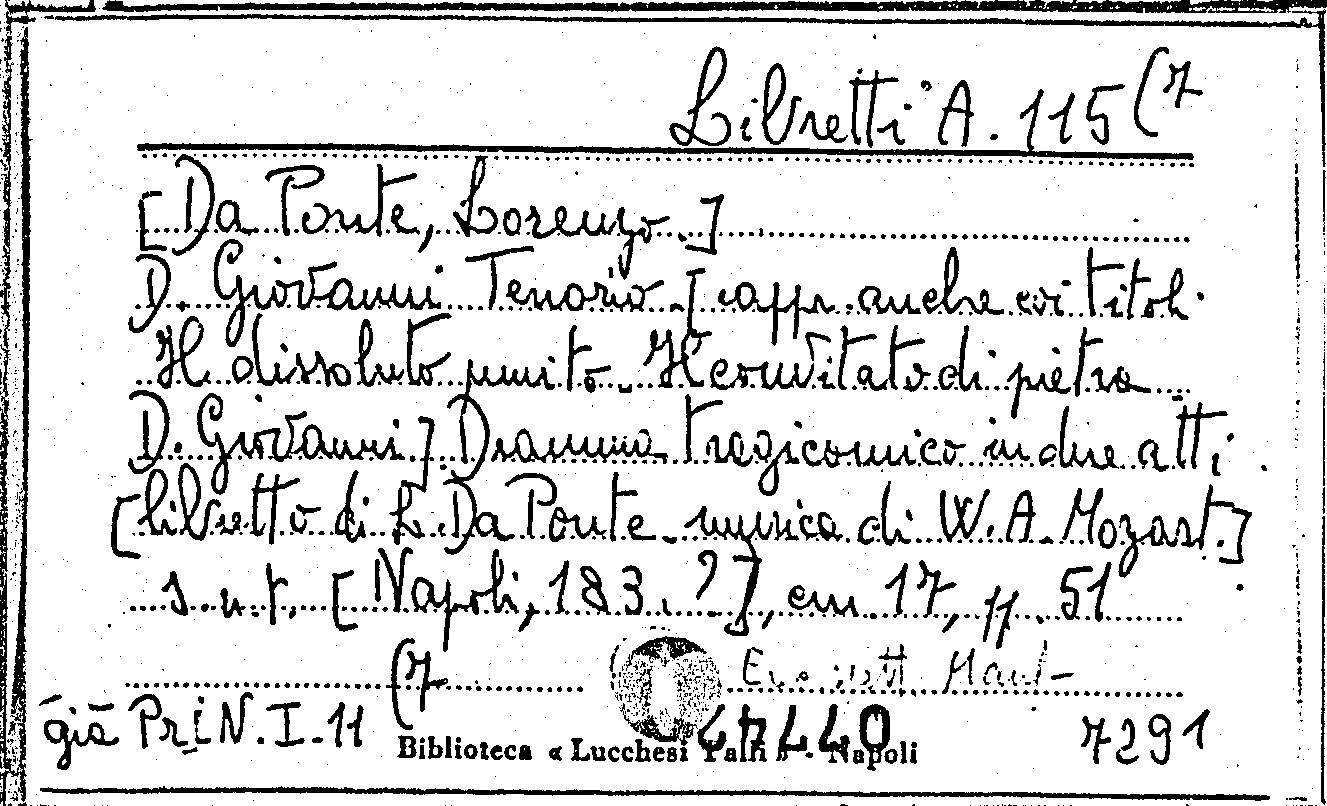 Libretti A. 115 (7
[Da Ponte, Lorenzo.]
D. Giovanni Tenorio. [rappr. anche coi titoli
Il dissoluto punito. Il convitato di pietra
D. Giovanni]. Dramma tragicomico in due atti.
[libretto di L. Da Ponte. musica di W. A. Mozart.]
s. n. t. [Napoli, 183.?], cm 17, pp. 51
(7
già Pr. i N. I. 11
47440
7291
Biblioteca « Lucchesi Palli » - Napoli